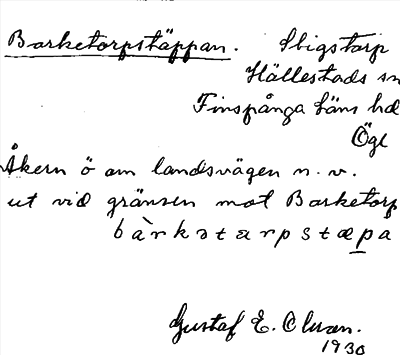 Barketorpstäppan. Stigstorp
Hällestads sn
Finspånga läns hd
Ögl
Åkern ö om landsvägen n.v.
ut vid gränsen mot Barketorp
bàrkətɔrpstæpa
Gustaf E. Olsson.
1930